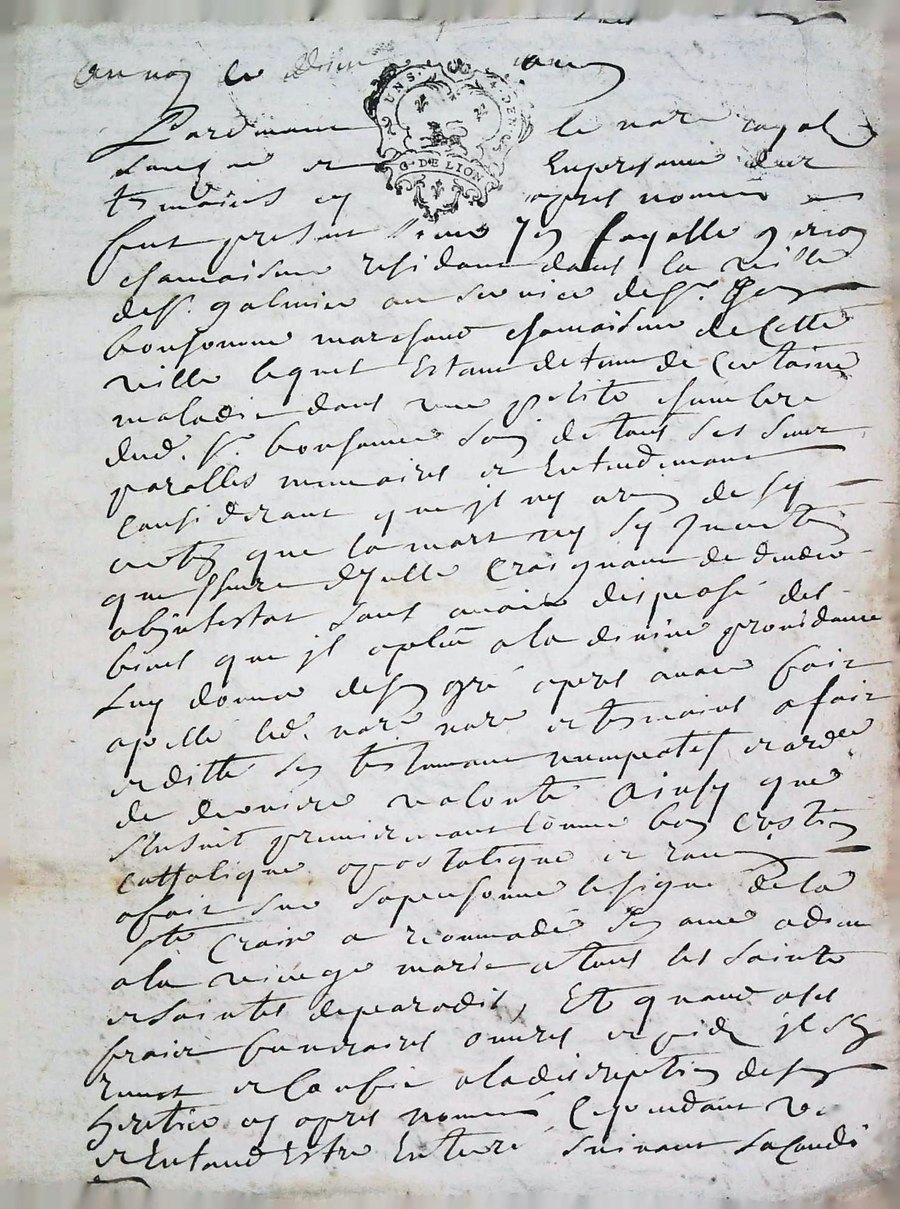 Pardevant le no.re royal
soussigné et en presence des
temoins cy apres nommes
fut present sieur Jean fayolle garçon
chamoiseur residant dans la ville
de St. galmier au service de Sr.
bonhomme marchand chamoiseur de cette
ville lequel Estant detenu de Certaine
maladie dans une petite chambre
dud. Sr. bonhomme sain de tous ses sens
parolles memoires et Entendement
Considerant que jl ny a rien de sy
certin que la mort ny sy Jncertin
que lheure dycelle Craignant de deceder
abjntestat sans avoir disposé des
biens que jl a plut a la divine providance
Luy donner de son gré apres avoir fait
apellé led. no.re et temoins a fait
et ditté son testament noncupatif et ordce
de derniere volonté Ainsy que
sensuit premierement Comme bon Crestien
Catholique apostolique et romain
a fait sur sa personne le signe de la
ste Croix a recommandé son ame a dieu
a la vierge marie a tous les saints
et saintes de paradis, Et quand a ses
fraix funeraires œuvres et pies jl sen
remet et Confie a la discreption de son
heretier cy apres nommé Cependant veut
et Entand Estre Enterré suivant sa Condi
UNS. 4. DEN
G. DE LION